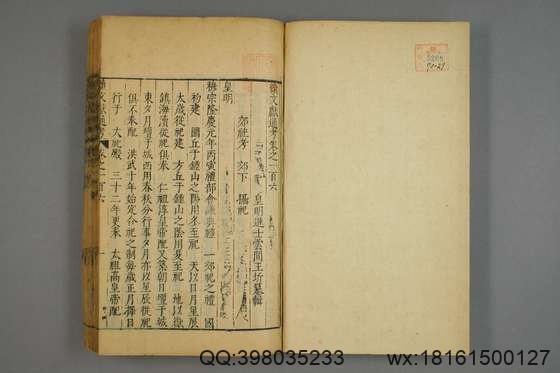 續文獻通考卷之一百六
皇明進士雲間王圻纂輯
郊祀考 郊下 祀
皇明
穆宗隆慶元年丙寅禮部會議典禮 一郊祀之禮 國
初建 圜丘于鍾山之陽用冬至祀 天以日月星辰
太歲從祀建 方丘于鍾山之陰用夏至祀 地以嶽
鎮海瀆從祀俱奉 仁祖淳皇帝配又築朝日壇于城
東夕月壇于城西用春秋分行事夕月亦以星辰從祀
俱不奉配 洪武十年始定合祀之制每歲正月擇日
行于 大祀殿 三十二年更奉 太祖高皇帝配
續文獻通考 卷之一百六 一
QQ:398035233
wx:18161500127